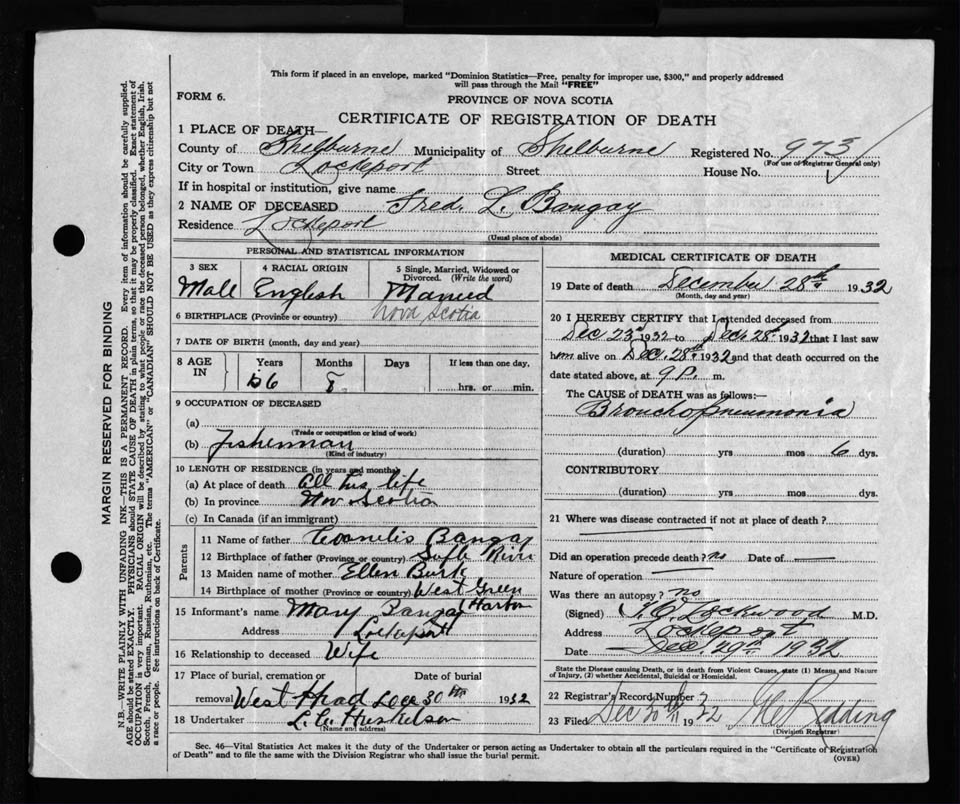 This form if placed in an envelope, marked "Dominion Statistics—Free, penalty for improper use, $300," and properly addressed
will pass through the Mail "FREE"
FORM 6.
PROVINCE OF NOVA SCOTIA
CERTIFICATE OF REGISTRATION OF DEATH
1 PLACE OF DEATH—
County of Shelburne Municipality of Shelburne Registered No. 973
(For use of Registrar General only)
City or Town Lockeport Street House No.
If in hospital or institution, give name
2 NAME OF DECEASED Fred. L. Bangay
Residence Lockeport
(Usual place of abode)
PERSONAL AND STATISTICAL INFORMATION
3 SEX 4 RACIAL ORIGIN 5 Single, Married, Widowed or Divorced. (Write the word)
Male English Married
6 BIRTHPLACE (Province or country) Nova Scotia
7 DATE OF BIRTH (month, day and year)
8 AGE IN Years Months Days If less than one day,
66 8 hrs. or min.
9 OCCUPATION OF DECEASED
(a)
(Trade or occupation or kind of work)
(b) Fisherman
(Kind of industry)
10 LENGTH OF RESIDENCE (in years and months)
(a) At place of death all his life
(b) In province Nov Scotia
(c) In Canada (if an immigrant)
Parents
11 Name of father Bangay
12 Birthplace of father (Province or country)
13 Maiden name of mother Ellen Burk
14 Birthplace of mother (Province or country) West Green
Harbor
15 Informant's name Mary Bangay
Address Lockeport
16 Relationship to deceased Wife
17 Place of burial, cremation or removal Date of burial
West Head Dec 30th 1932
18 Undertaker
(Name and address)
MEDICAL CERTIFICATE OF DEATH
19 Date of death December 28th 1932
(Month, day and year)
20 I HEREBY CERTIFY that I attended deceased from
Dec 23rd 1932 to Dec. 28th 1932 that I last saw
him alive on Dec. 28th 1932 and that death occurred on the
date stated above, at 9 P. m.
The CAUSE of DEATH was as follows:—
Bronchopneumonia
(duration) yrs mos 6 ds.
CONTRIBUTORY
(duration) yrs mos ds.
21 Where was disease contracted if not at place of death?
Did an operation precede death? no Date of
Nature of operation
Was there an autopsy? no
(Signed) Lockwood M.D.
Address Lockeport
Date Dec. 29th 1932
State the Disease causing Death, or in death from Violent Causes, state (1) Means and Nature
of Injury, (2) whether Accidental, Suicidal or Homicidal.
22 Registrar's Record Number
23 Filed Dec 30th 1932 Redding
(Division Registrar)
Sec. 46—Vital Statistics Act makes it the duty of the Undertaker or person acting as Undertaker to obtain all the particulars required in the "Certificate of Registration
of Death" and to file the same with the Division Registrar who shall issue the burial permit.
(OVER)
MARGIN RESERVED FOR BINDING
N.B.—WRITE PLAINLY WITH UNFADING INK—THIS IS A PERMANENT RECORD. Every item of information should be carefully supplied.
AGE should be stated EXACTLY. PHYSICIANS should STATE CAUSE OF DEATH in plain terms, so that it may be properly classified. Exact statement of
OCCUPATION is very important. RACIAL ORIGIN will be described by stating to what people or race the deceased person belonged, whether English, Irish,
Scotch, French, German, Russian, Ruthenian, etc. The terms "AMERICAN" or "CANADIAN" SHOULD NOT BE USED as they express citizenship but not
a race or people. See instructions on back of Certificate.